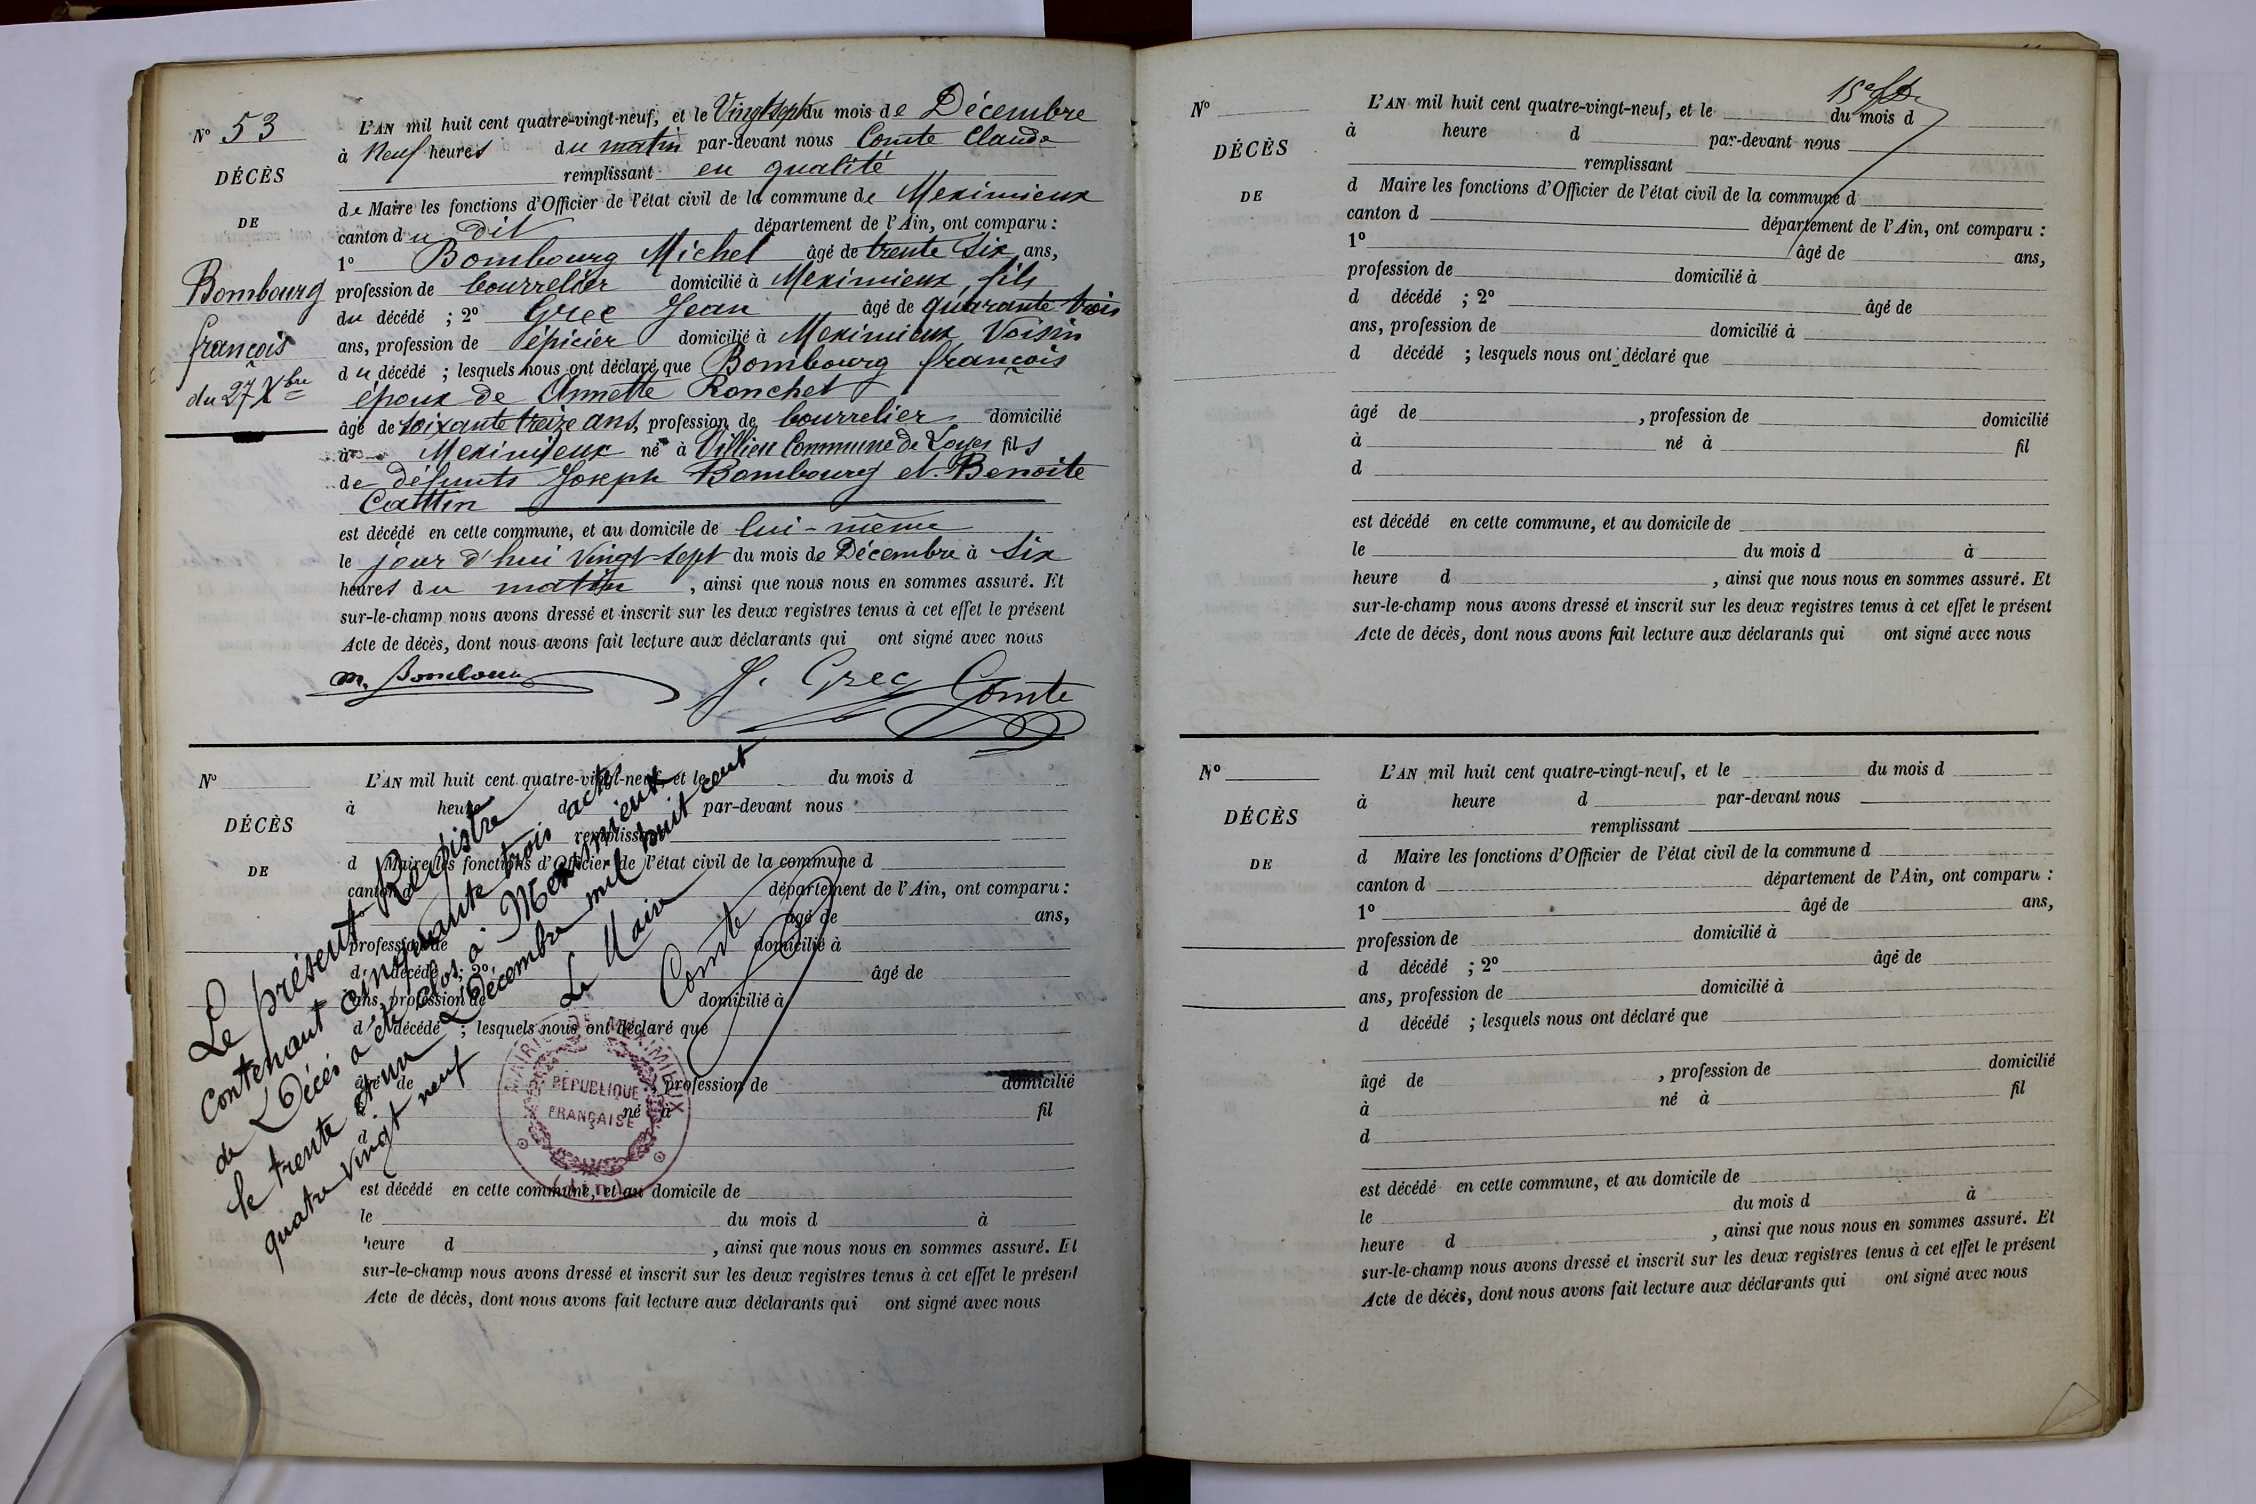 N° 53
DÉCÈS
DE
Bombourg
françois
du 27 Xbre
L'AN mil huit cent quatre-vingt-neuf, et le Vingt sept du mois de Décembre
à Neuf heures du matin par-devant nous Comte Claude
remplissant en qualité
de Maire les fonctions d'Officier de l'état civil de la commune de Meximieux
canton du dit département de l'Ain, ont comparu :
1° Bombourg Michel âgé de trente Six ans,
profession de bourrelier domicilié à Meximieux, fils
du décédé ; 2° Grec Jean âgé de quarante trois
ans, profession de épicier domicilié à Meximieux Voisin
du décédé ; lesquels nous ont déclaré que Bombourg françois
époux de Annette Ronchet
âgé de soixante treize ans, profession de bourrelier domicilié
à Meximieux né à Villieu Commune de Loyes fils
de défunts Joseph Bombourg et Benoite
Cattin
est décédé en cette commune, et au domicile de lui-même
le jour d'hui Vingt-sept du mois de Décembre à Six
heures du matin, ainsi que nous nous en sommes assuré. Et
sur-le-champ nous avons dressé et inscrit sur les deux registres tenus à cet effet le présent
Acte de décès, dont nous avons fait lecture aux déclarants qui ont signé avec nous
M. Bombourg J. Grec Comte
N°
DÉCÈS
DE
L'AN mil huit cent quatre-vingt-neuf, et le du mois d
à heure d par-devant nous
remplissant
d Maire les fonctions d'Officier de l'état civil de la commune d
canton d département de l'Ain, ont comparu :
âgé de ans,
profession de domicilié à
d décédé ; 2° âgé de
ans, profession de domicilié à
d décédé ; lesquels nous ont déclaré que
âgé de , profession de domicilié
né à fil
d
est décédé en cette commune, et au domicile de
le du mois d à
heure d , ainsi que nous nous en sommes assuré. Et
sur-le-champ nous avons dressé et inscrit sur les deux registres tenus à cet effet le présent
Acte de décès, dont nous avons fait lecture aux déclarants qui ont signé avec nous
Le présent Registre
Contenant cinquante trois actes
de Décés a été clos à Meximieux
le trente et un Décembre mil huit cent
quatre vingt neuf
Le Maire
Comte
MAIRIE DE MEXIMIEUX
RÉPUBLIQUE
FRANÇAISE
(Ain)
N°
DÉCÈS
DE
L'AN mil huit cent quatre-vingt-neuf, et le du mois d
à heure d par-devant nous
remplissant
d Maire les fonctions d'Officier de l'état civil de la commune d
canton d département de l'Ain, ont comparu :
1° âgé de ans,
profession de domicilié à
d décédé ; 2° âgé de
ans, profession de domicilié à
d décédé ; lesquels nous ont déclaré que
âgé de , profession de domicilié
à né à fil
d
est décédé en cette commune, et au domicile de
le du mois d à
heure d , ainsi que nous nous en sommes assuré. Et
sur-le-champ nous avons dressé et inscrit sur les deux registres tenus à cet effet le présent
Acte de décès, dont nous avons fait lecture aux déclarants qui ont signé avec nous
N°
DÉCÈS
DE
L'AN mil huit cent quatre-vingt-neuf, et le du mois d
à heure d par-devant nous
remplissant
d Maire les fonctions d'Officier de l'état civil de la commune d
canton d département de l'Ain, ont comparu :
1° âgé de ans,
profession de domicilié à
d décédé ; 2° âgé de
ans, profession de domicilié à
d décédé ; lesquels nous ont déclaré que
âgé de , profession de domicilié
à né à fil
d
est décédé en cette commune, et au domicile de
le du mois d à
heure d , ainsi que nous nous en sommes assuré. Et
sur-le-champ nous avons dressé et inscrit sur les deux registres tenus à cet effet le présent
Acte de décès, dont nous avons fait lecture aux déclarants qui ont signé avec nous